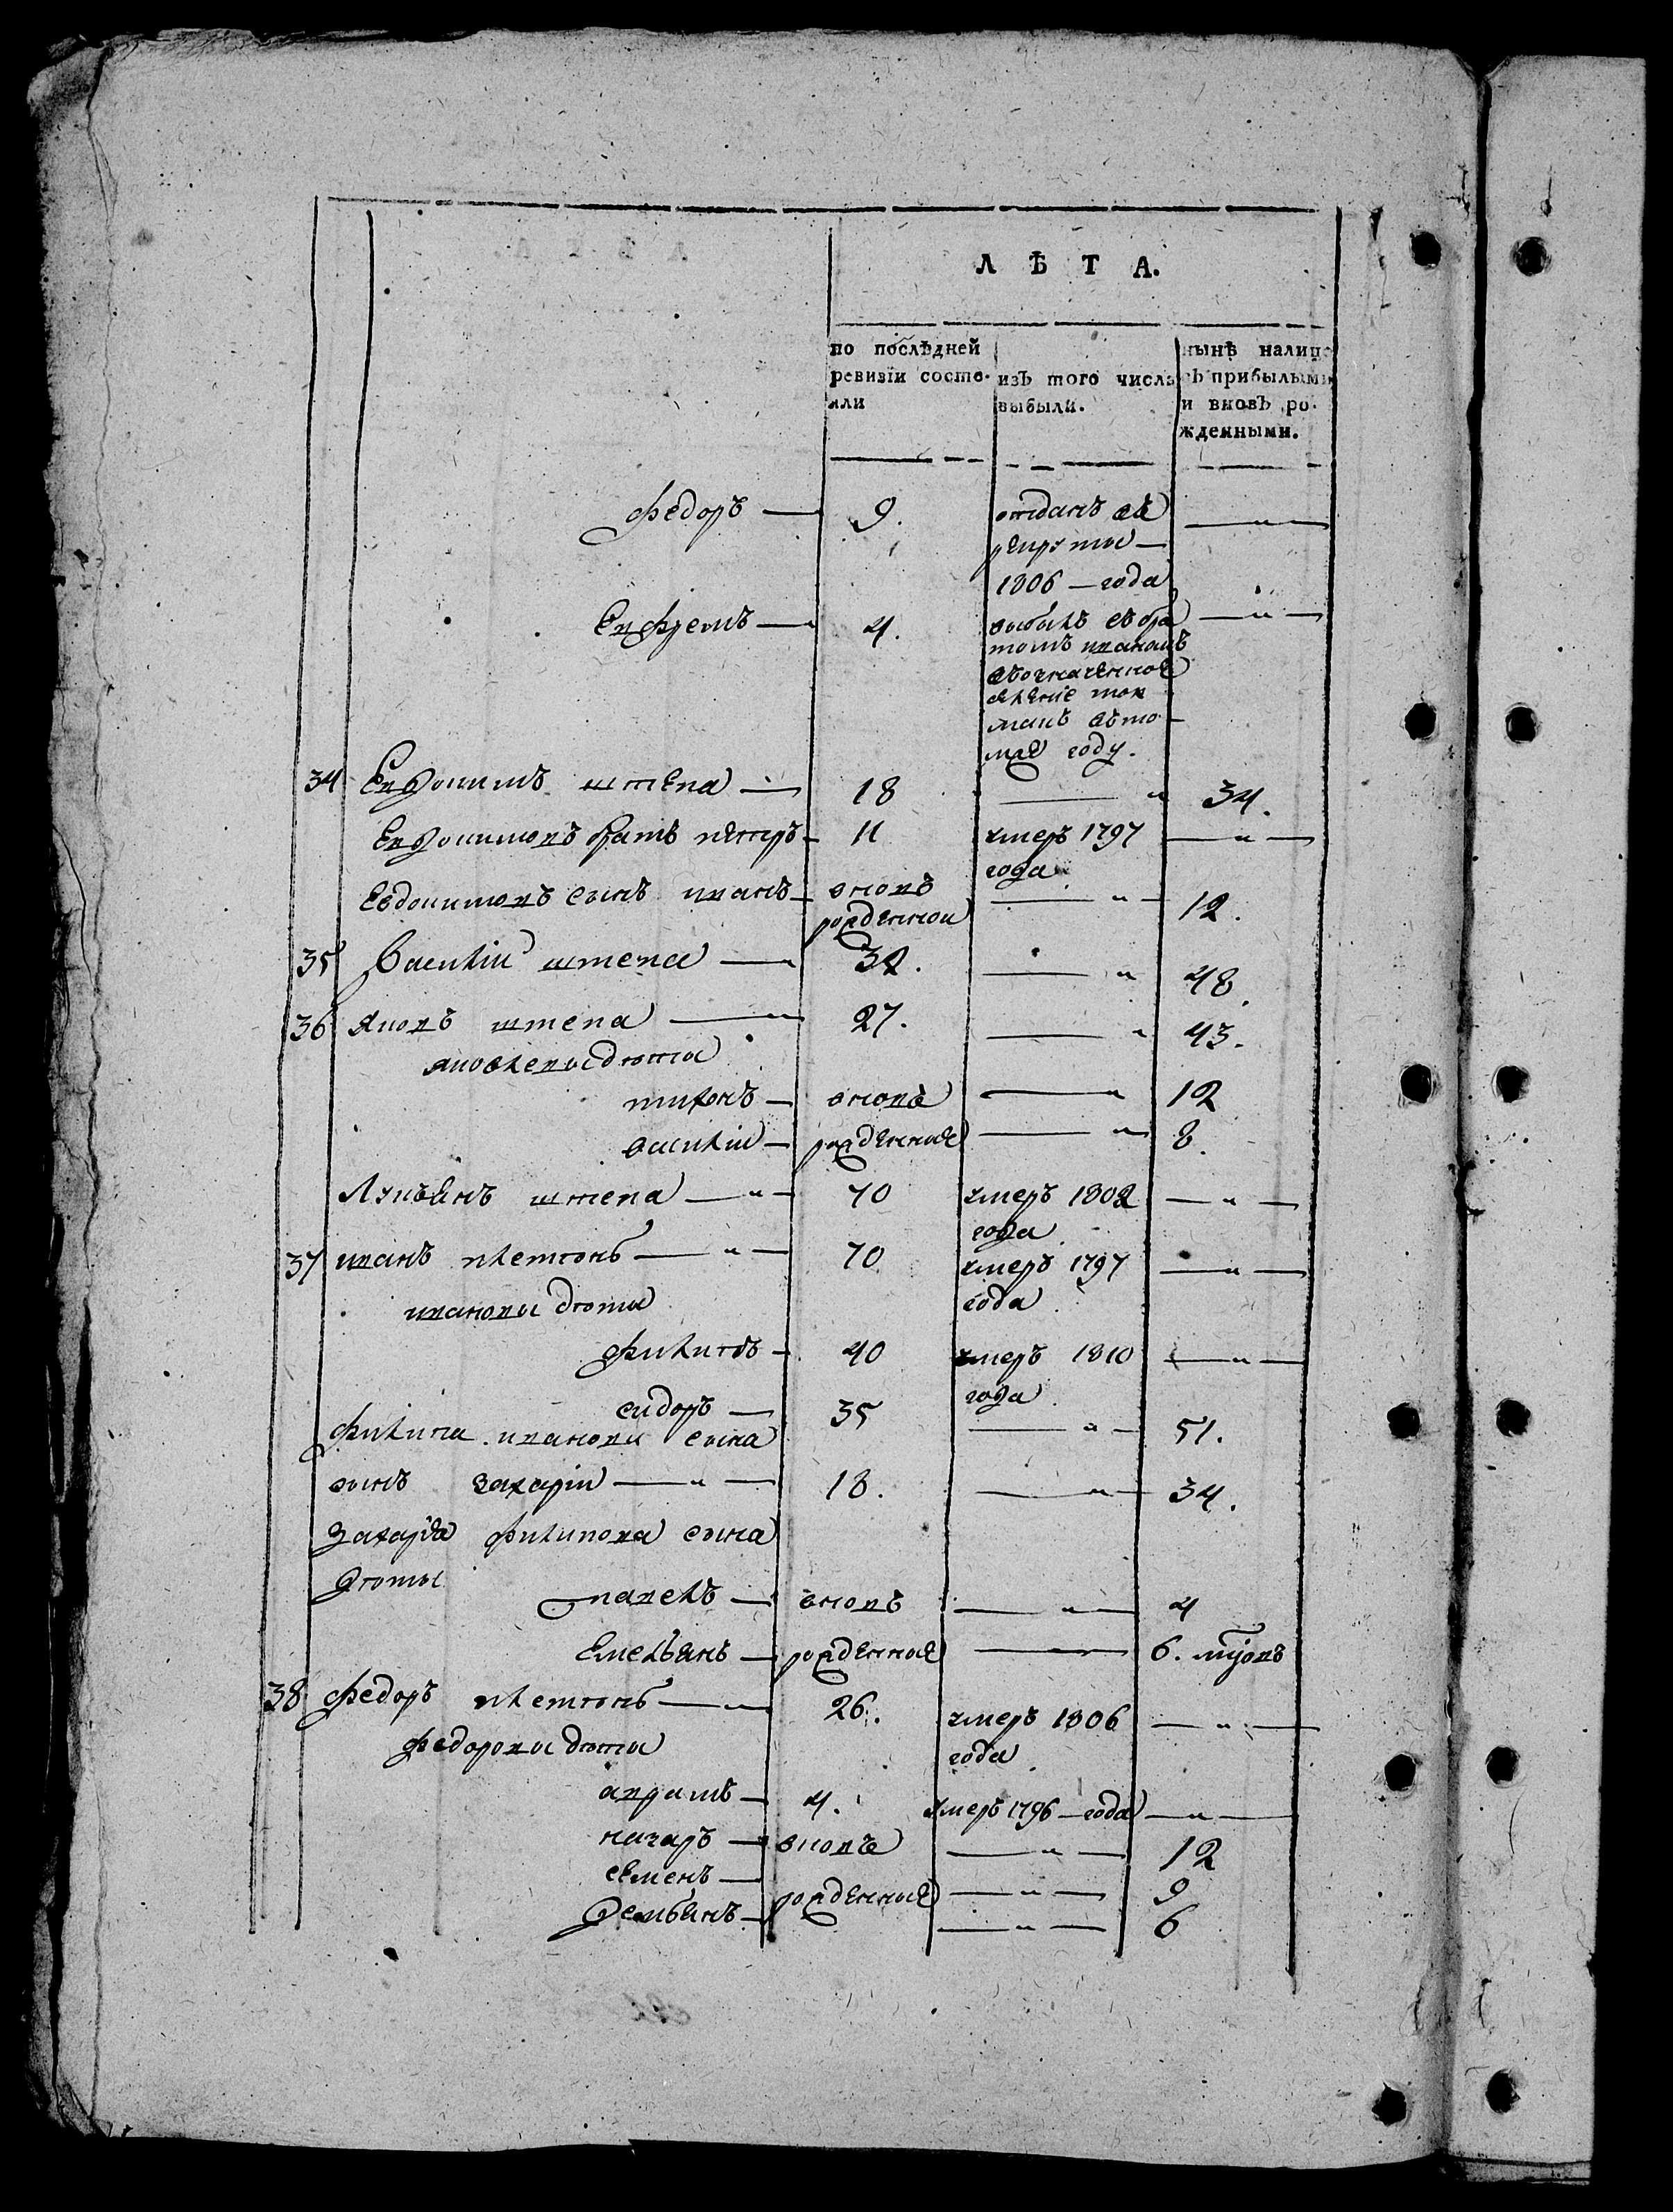 Л Ѣ Т А.
по послѣдней
ревизїи состо-
яли
изЪ того числа
выбыли.
нынѣ налицо
сЪ прибылыми
и вновЪ ро-
жденными.
федоръ — 9. отданъ въ — " —
рекруты —
1806 — года
Евфремъ — 4. выбылъ събра — " —
томъ иваномъ
въозначенное
селение
томже году.
34 Евдокимъ штепа — 18 — " 34.
Евдокимовъ братъ петръ — 11 умеръ 1797 — " —
года
Евдокимовъ сынъ иванъ — вновь — " — 12.
рожденной
35 Василий штепа — 32. — " 48.
36 яковъ штепа — " 27. — " 43.
яковлевы дѣти
тихонъ — вновь — " 12
василий — рожденные — " 8.
Лукъянъ штепа — " — 70 умеръ 1802 — " —
года
37 иванъ плетѣнь — " — 70 умеръ 1797 — " —
ивановы дѣти года
филипъ — 40 умеръ 1810 — " —
года
сидоръ — 35 — " — 51.
филипа иванова сына
сынъ захарий — " — 18. — " — 34.
захария филипова сына
дѣти
павелъ — вновь — " — 4
Емельянъ — рожденные — 6. мцовъ
38 федоръ плетѣнь — " 26. умеръ 1806 — " —
федоровы дѣти года
аврамъ — 4. умеръ 1796 — года — " —
назаръ — вновь — " — 12
семенъ — рожденные — " — 9
Демьянъ — — " — 6